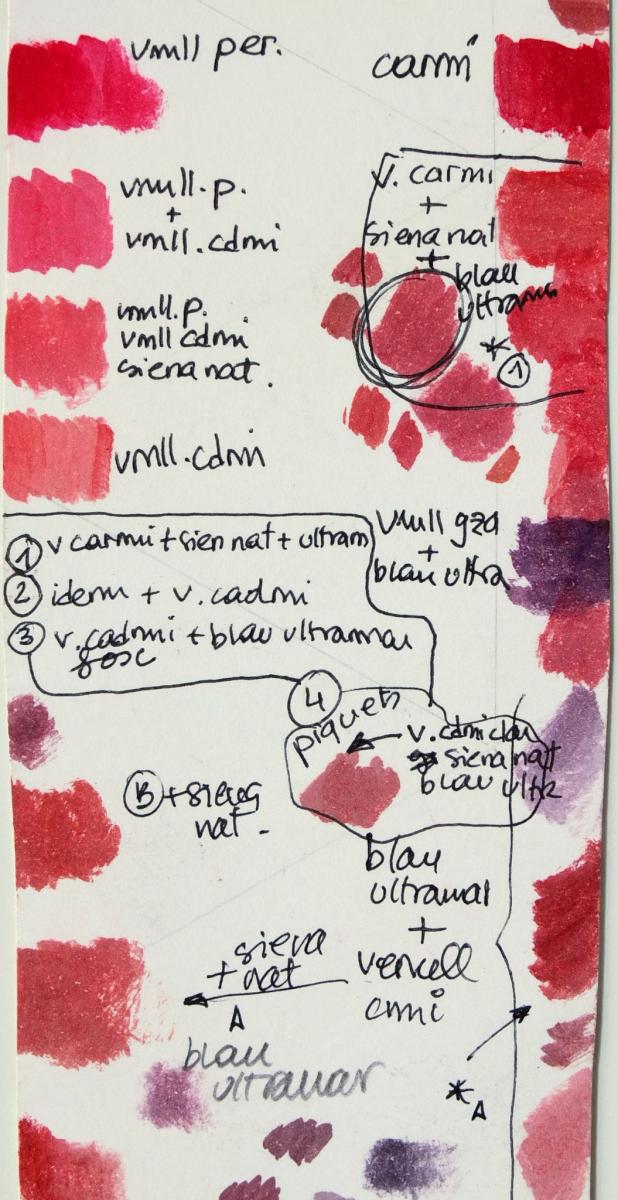 vmll per.
carmi
vmll.p.
+
vmll.cdmi
v. carmi
+
siena nat
+
blau
ultram
* 1
vmll.p.
vmll cdmi
siena nat.
vmll.cdmi
1 v carmi + sien nat + ultram
2 idem + v. cadmi
3 v. cadmi + blau ultramar
fosc
Vmll gza
+
blau ultra
4
piquets
v. cdmi clar
siena nat
blau ultr
B + siena
nat.
blau
ultramar
+
vermell
cmi
siena
+ nat
A
blau
ultramar
* A